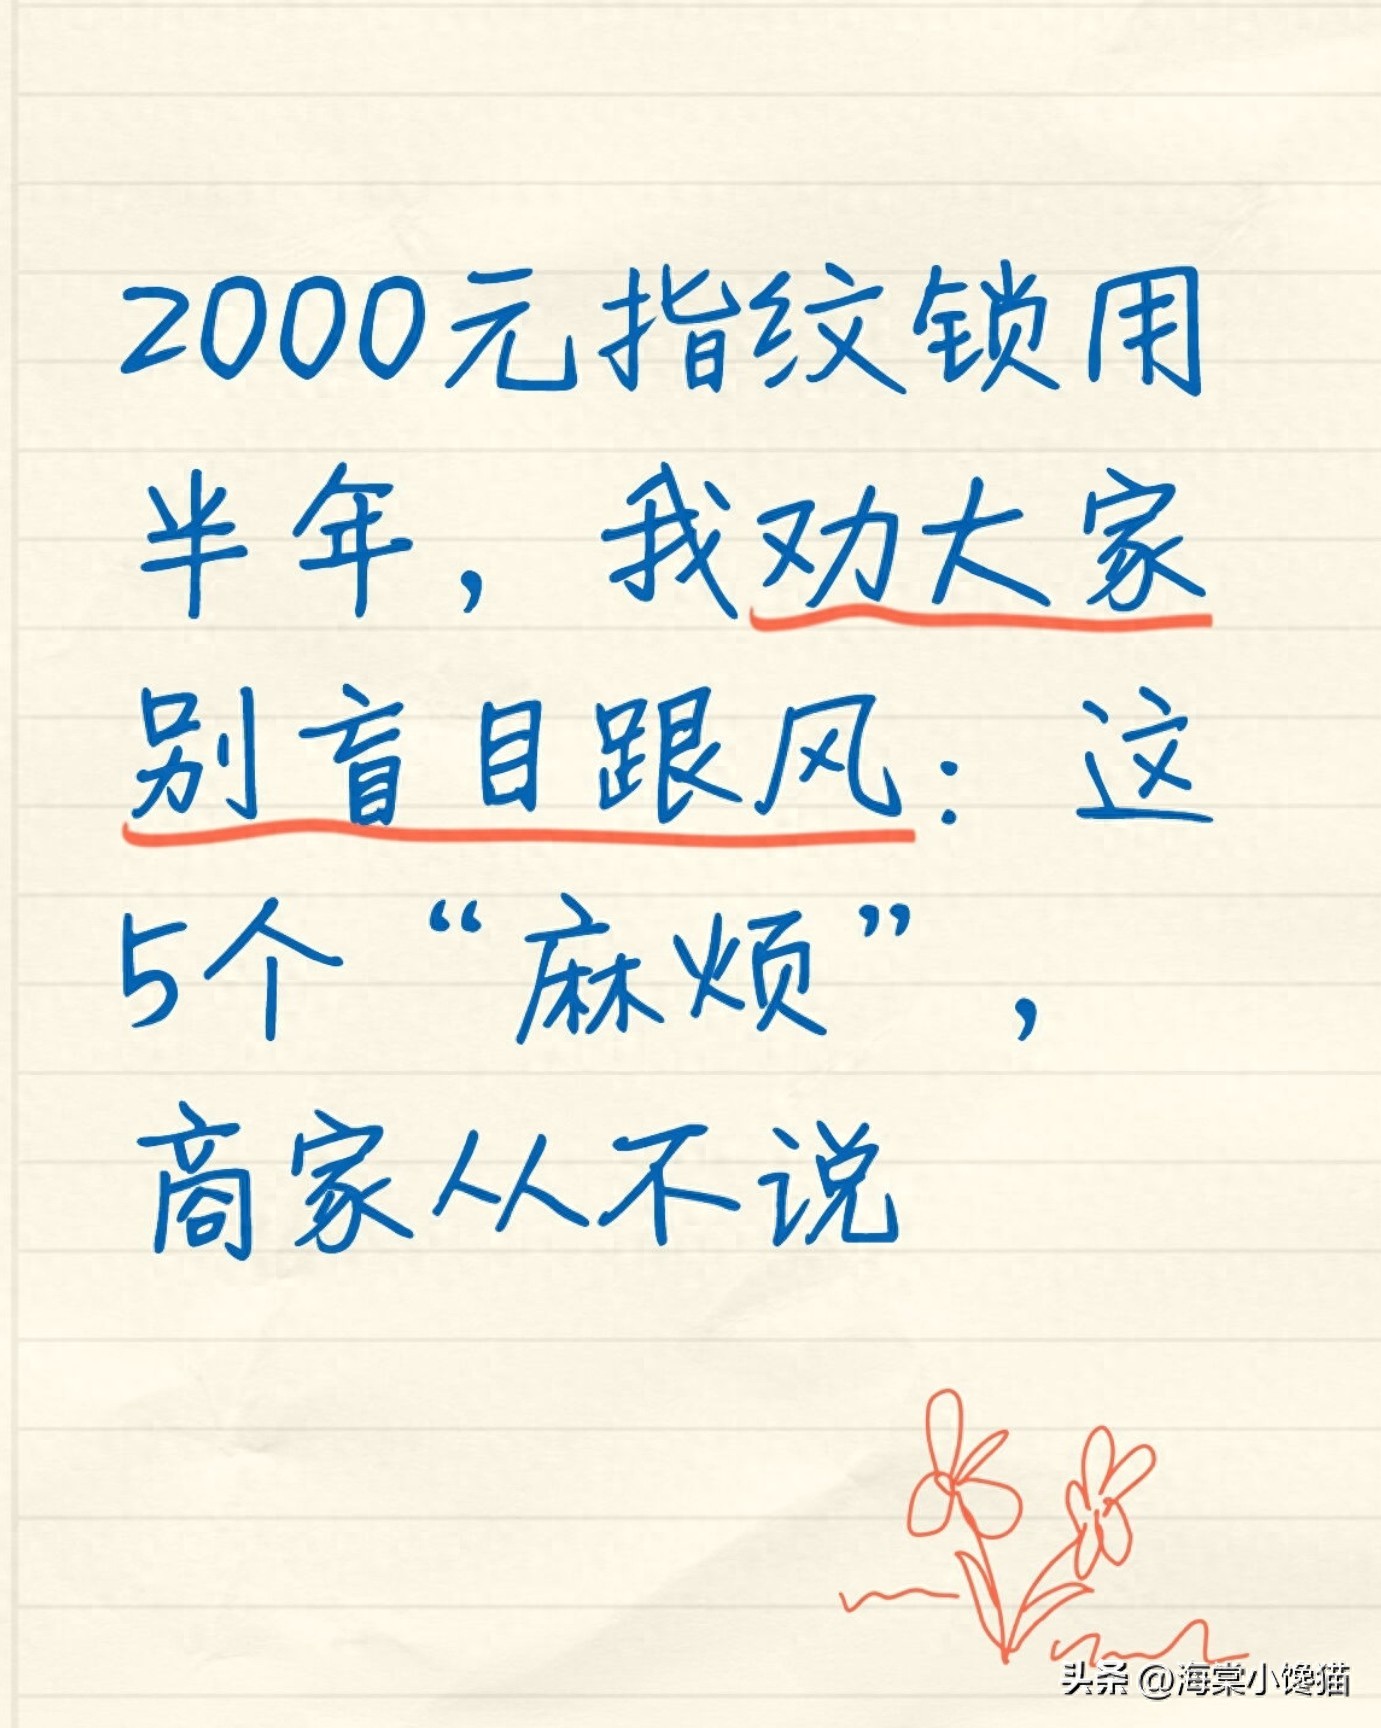 2000元指纹锁用
半年，我劝大家
别盲目跟风：这
5个“麻烦”，
商家从不说
头条 @海棠小馋猫